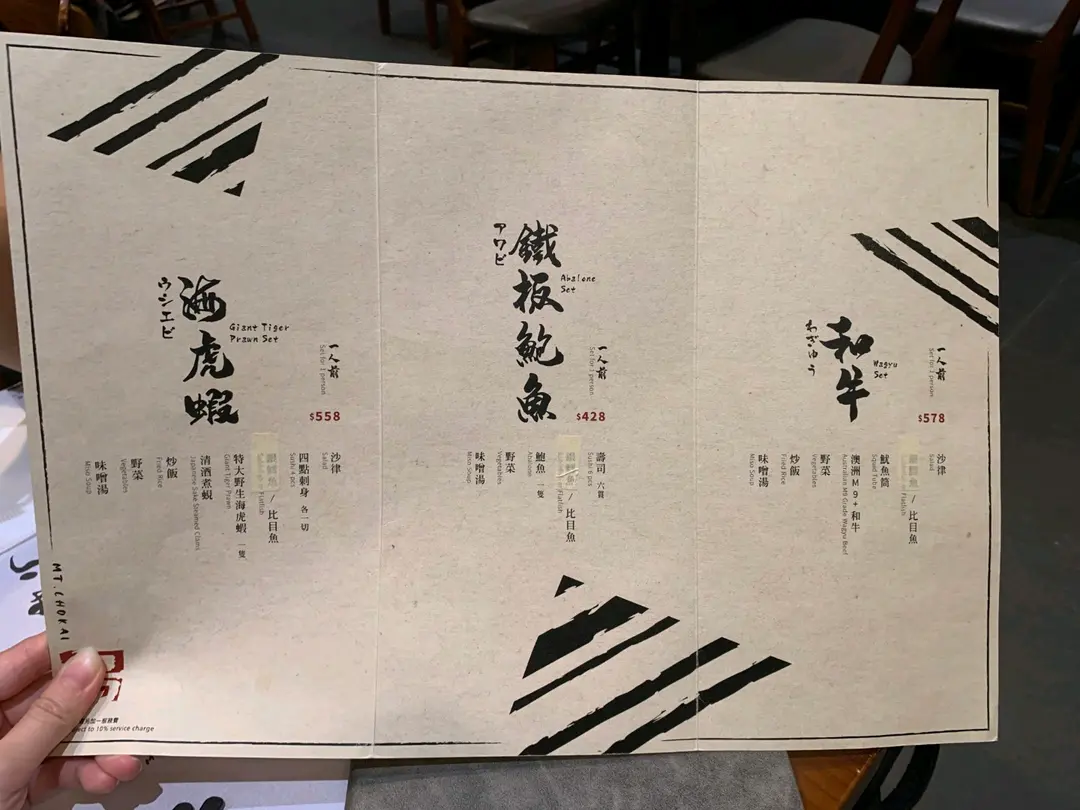 和牛
わぎゅう
Wagyu
Set
一人前
Set for 1 person
$578
沙律
Salad
/ 比目魚
Flatfish
魷魚筒
Squid Tube
澳洲M9+和牛
Australian M9 Grade Wagyu Beef
野菜
Vegetables
炒飯
Fried Rice
味噌湯
Miso Soup
鐵板鮑魚
アワビ
Abalone
Set
一人前
Set for 1 person
$428
壽司 六貫
Sushi 6 pcs
/ 比目魚
Flatfish
鮑魚 一隻
Abalone
野菜
Vegetables
味噌湯
Miso Soup
海虎蝦
ウシエビ
Giant Tiger
Prawn Set
一人前
Set for 1 person
$558
沙律
Salad
四點刺身 各一切
Sushi 4 pcs
/ 比目魚
Flatfish
特大野生海虎蝦 一隻
Giant Tiger Prawn
清酒煮蜆
Japanese Sake Steamed Clams
炒飯
Fried Rice
野菜
Vegetables
味噌湯
Miso Soup
MT.CHOKAI
另加一服務費
to 10% service charge